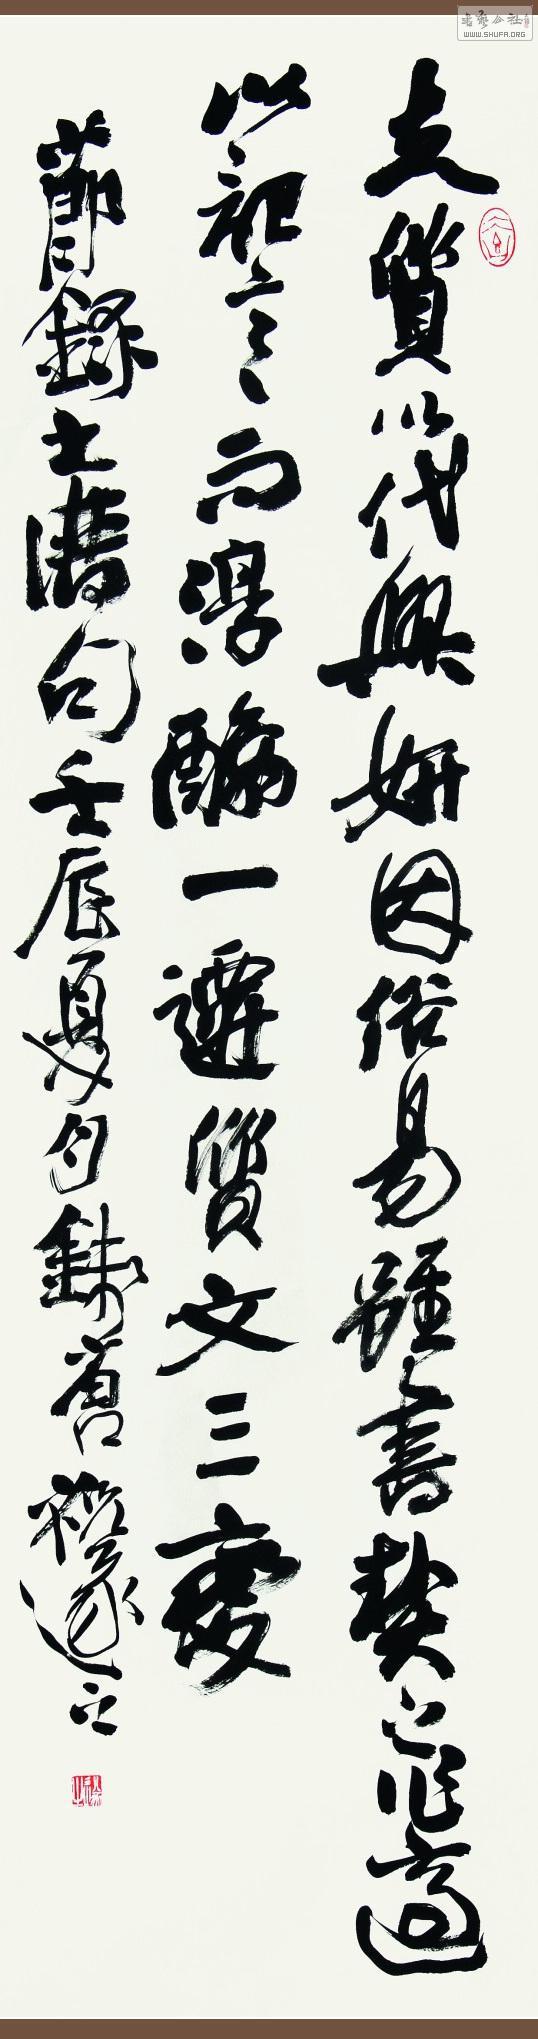 书艺公社
WWW.SHUFA.ORG
夫質以代興妍因俗易雖書契之作適
以記言而淳醨一遷質文三變
節錄書譜句壬辰夏月